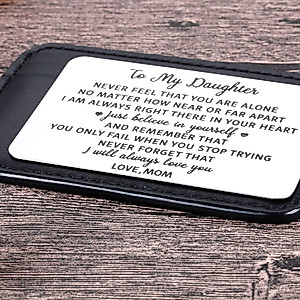 To My Daughter
NEVER FEEL THAT YOU ARE ALONE
NO MATTER HOW NEAR OR FAR APART
I AM ALWAYS RIGHT THERE IN YOUR HEART
just believe in yourself
AND REMEMBER THAT
YOU ONLY FAIL WHEN YOU STOP TRYING
NEVER FORGET THAT
I will always love you
LOVE, MOM